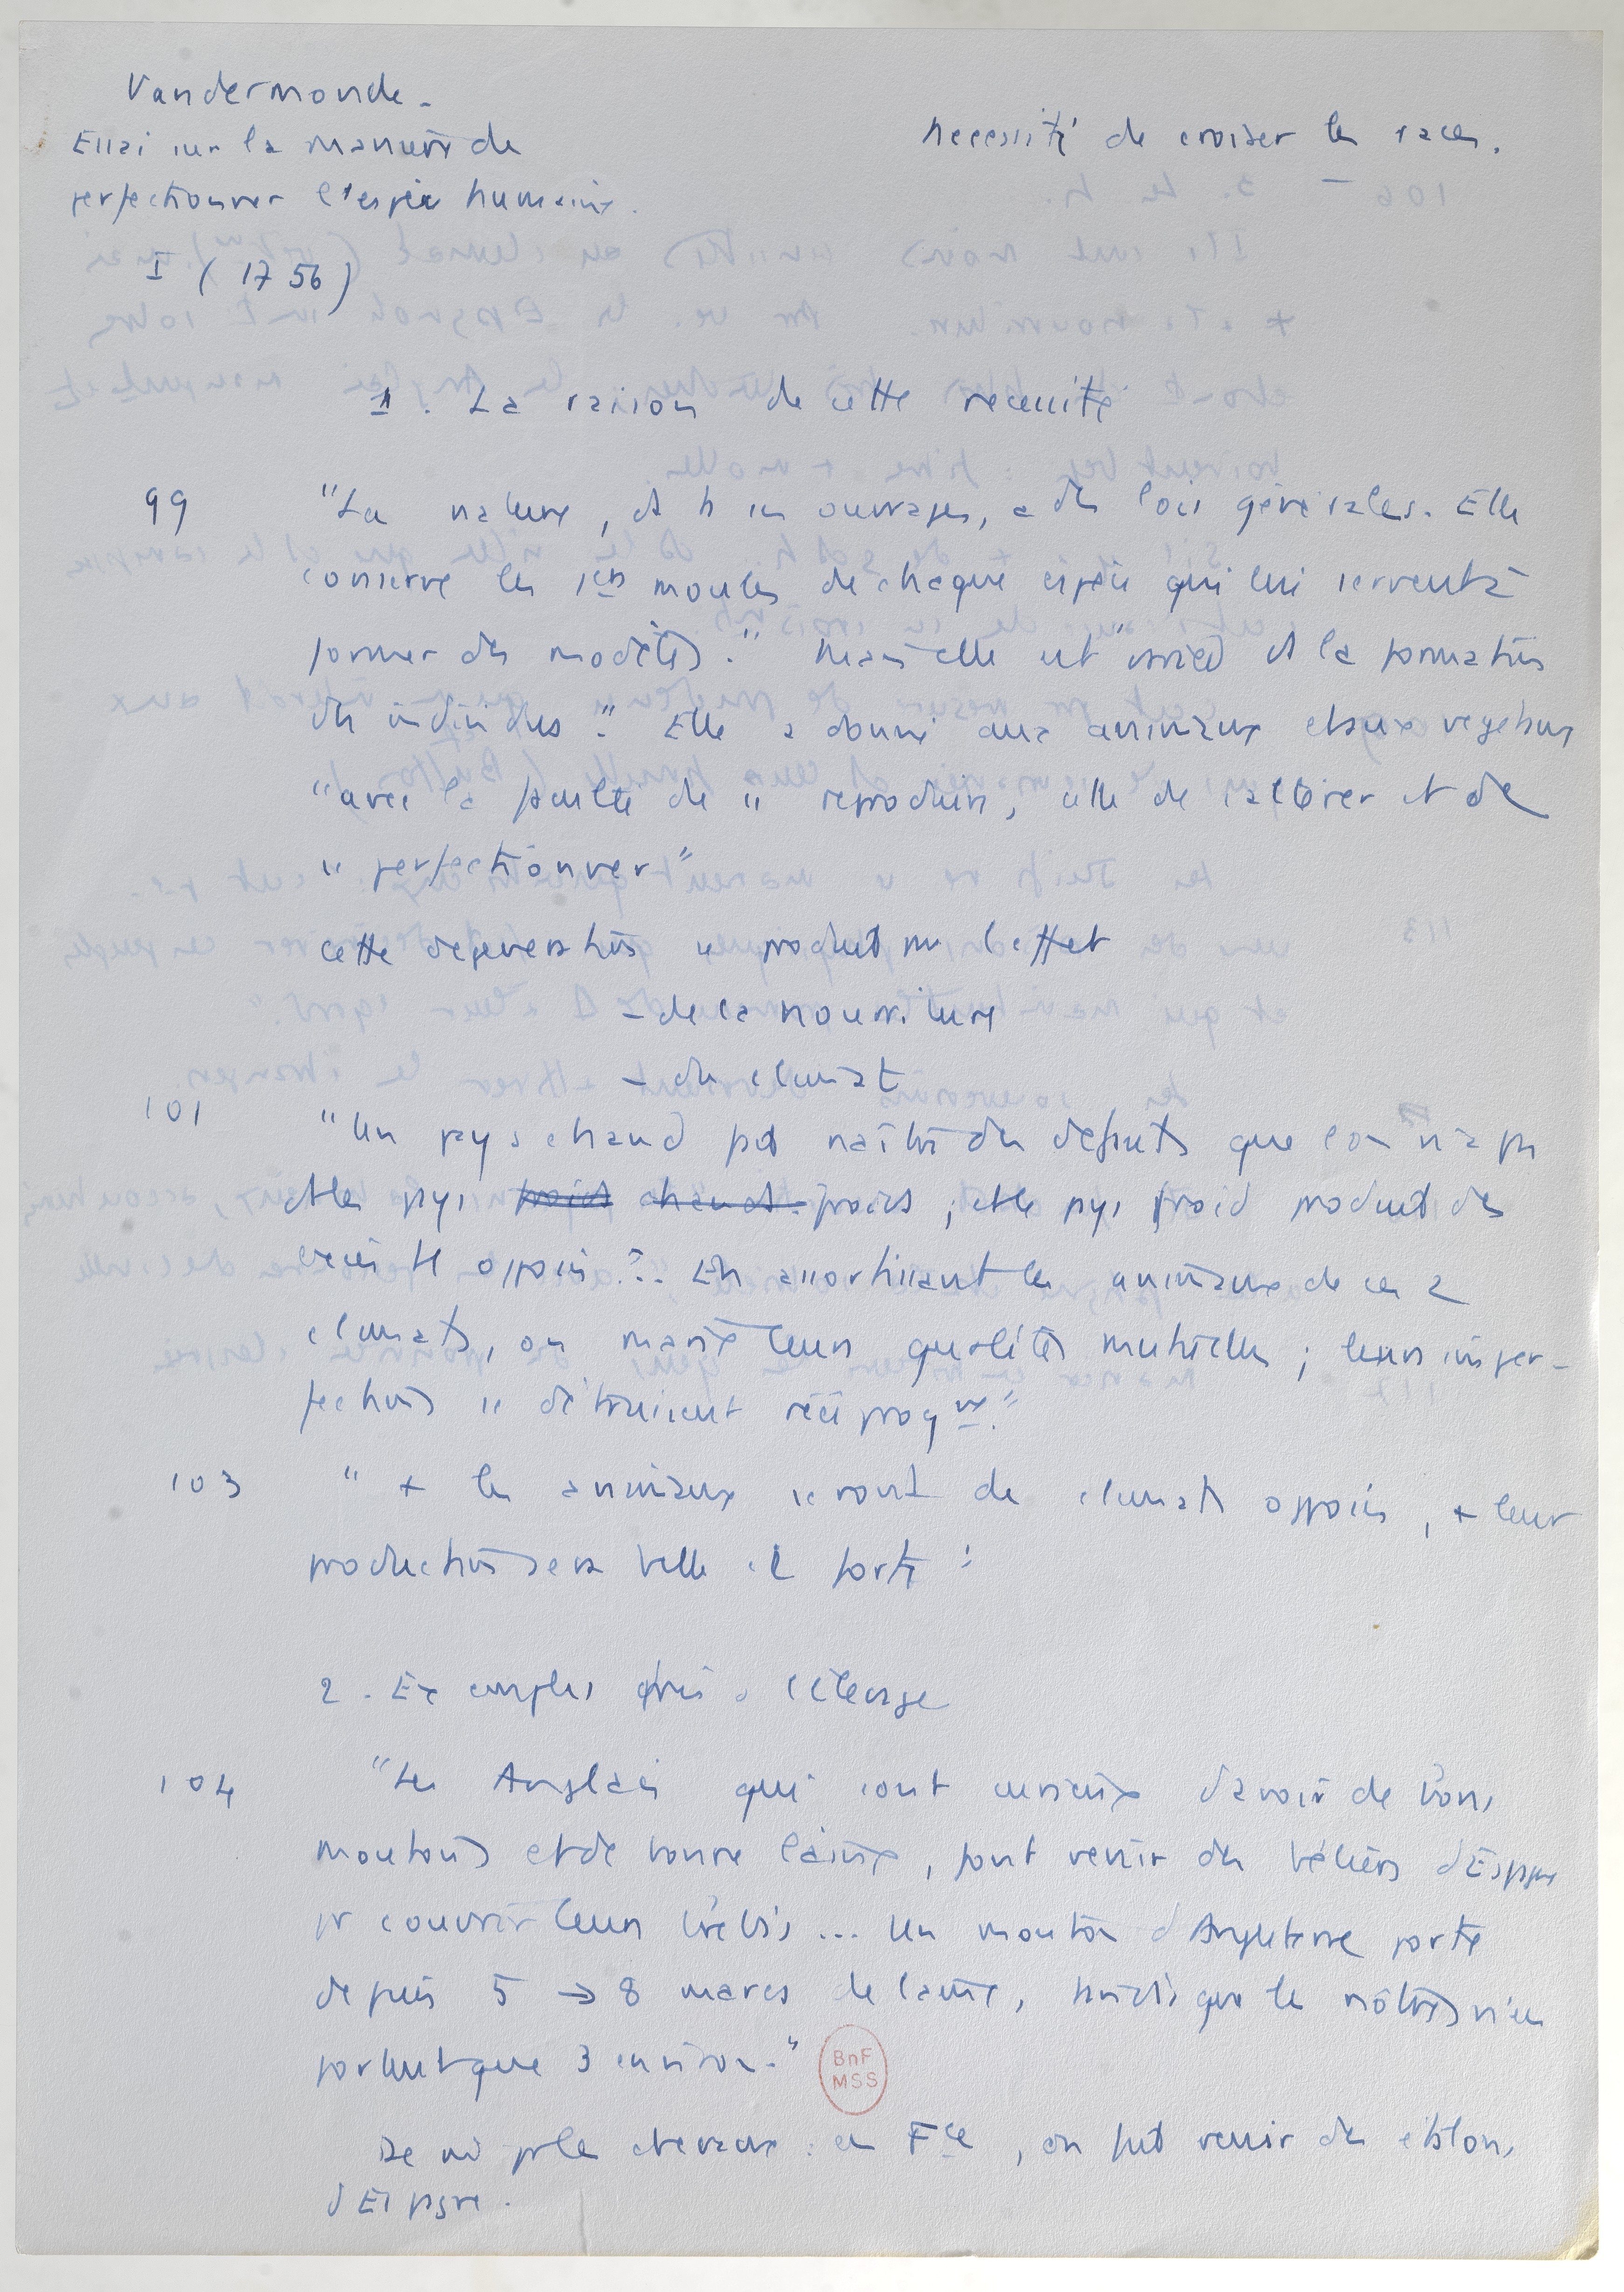 Vandermonde.
Essai sur la manière de
perfectionner l'espèce humaine.
I (1756)
Nécessité de croiser les races.
1. La raison de cette nécessité
99 "La nature, ds ts ses ouvrages, a des lois générales. Elle
conserve les 1ers moules de chaque espèce qui lui servent à
former des modèles." Mais elle est " ds la formation
des individus". Elle a donné aux animaux et aux végétaux
"avec la faculté de se reproduire, celle de s'altérer et de
se perfectionner"
Cette dégénération se produit par l'effet
- de la nourriture
- du climat
101 "Un pays chaud fait naître des défauts que l'on n'a pas
ds les pays froids chauds froids ; et le pays froid produit des
excès tt opposés... En assortissant les animaux de ces 2
climats, on marie leurs qualités mutuelles ; leurs imper-
fections se détruisent réciproqnt."
103 " + les animaux seront de climats opposés, + leur
production sera belle et forte"
2. Exemples pris à l'élevage
104 "Les Anglais qui sont curieux d'avoir de bons
moutons et de bonne laine, font venir des béliers d'Espagne
pr couvrir leurs brebis... Un mouton d'Angleterre porte
depuis 5 → 8 marcs de laine, tandis que les nôtres n'en
portent que 3 environ."
BnF
MSS
De m pr les chevaux : en Fce, on fait venir des étalons
d'Espagne.